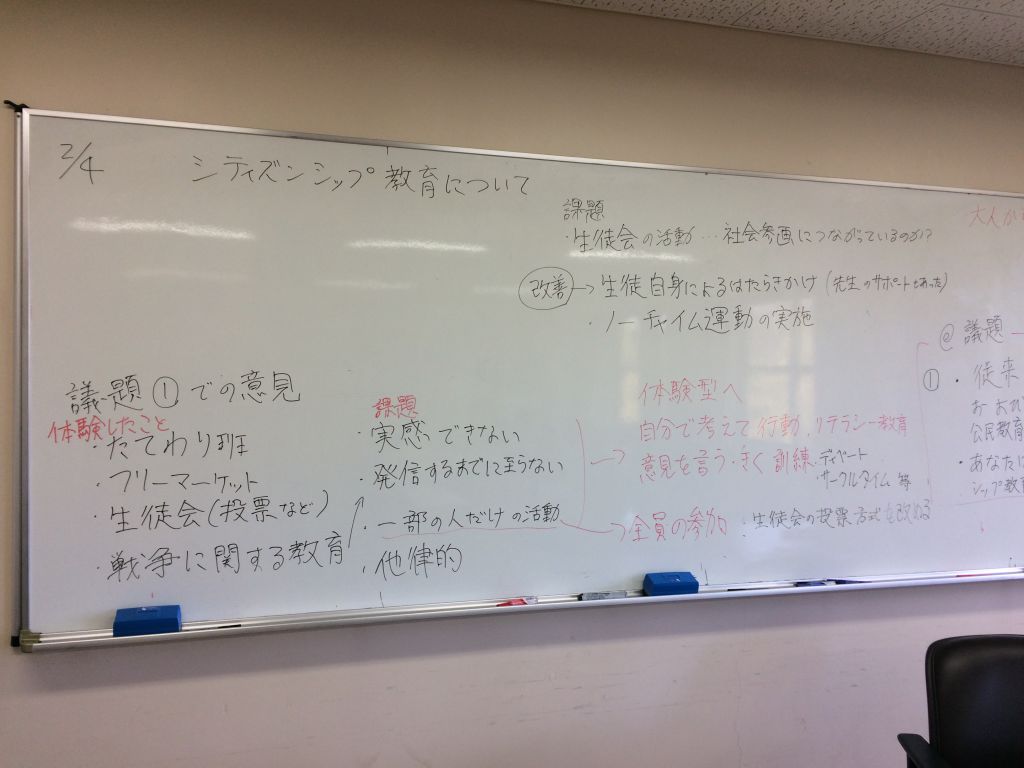 2/4
シティズンシップ教育について
課題
・生徒会の活動…社会参画につながっているのか?
改善→生徒自身によるはたらきかけ(先生のサポートもあった)
・ノーチャイム運動の実施
議題①での意見
体験したこと
・たてわり班
・フリーマーケット
・生徒会(投票など)
・戦争に関する教育
課題
・実感できない
・発信するまでに至らない
・一部の人だけの活動
・他律的
体験型へ
自分で考えて行動、リテラシー教育
意見を言う・きく訓練
・ディベート
・サークルタイム 等
→全員の参加
・生徒会の投票方式を改める
大人が
@議題
①・従来
公民教育
・あなたに
シップ教育